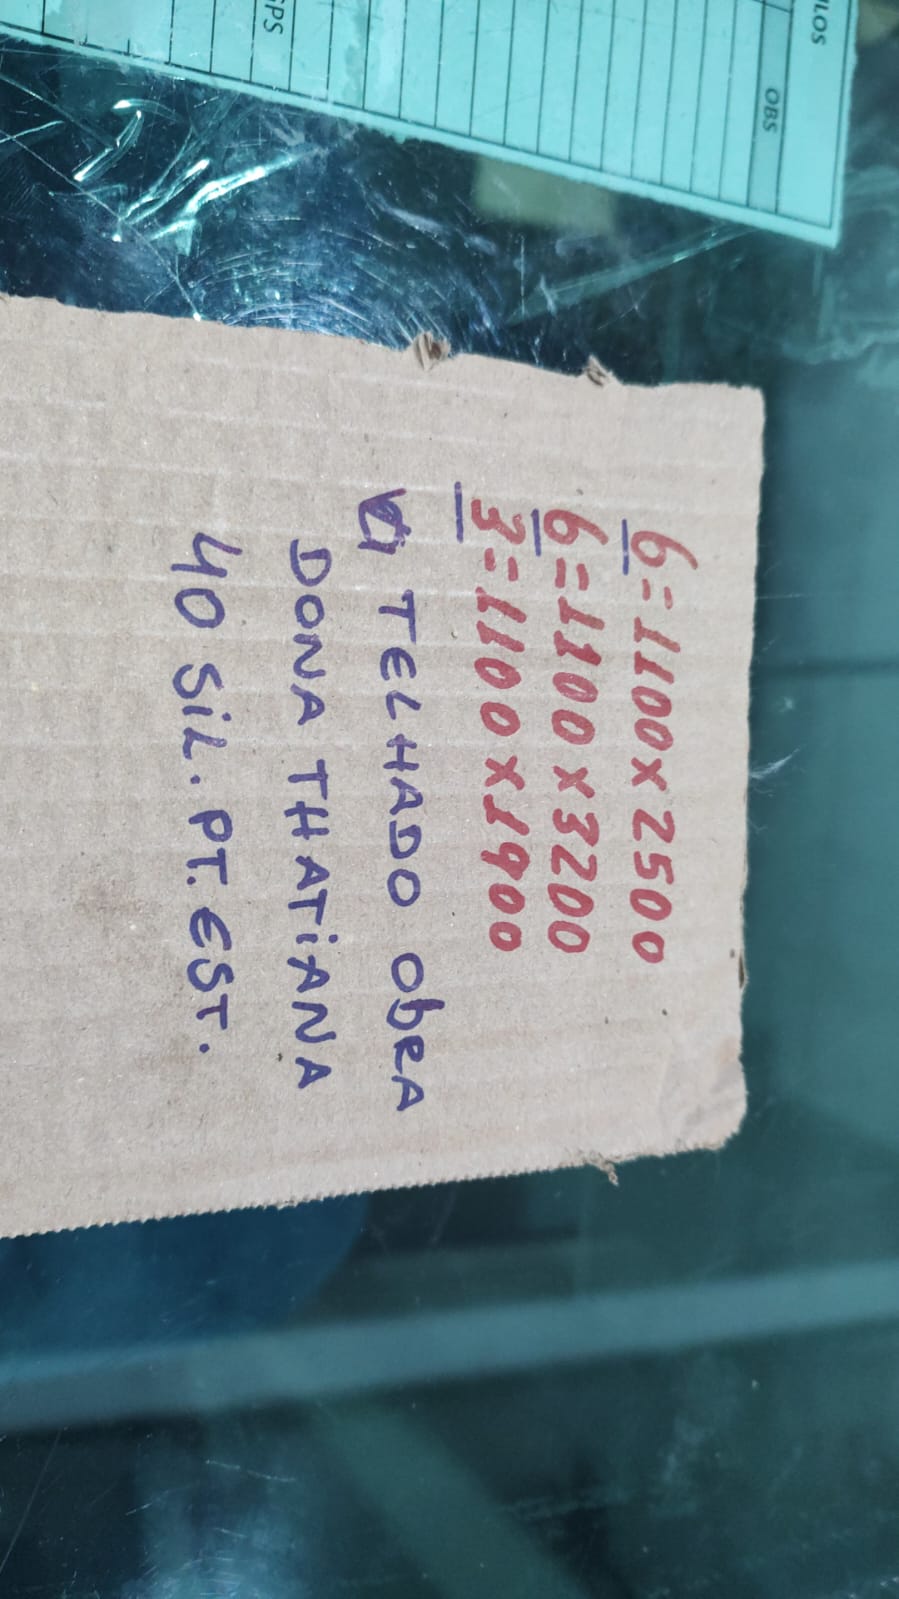 LOS
OBS
GPS
6=1100x2500
6=1100x3200
3=1100x1900
TELHADO ObRA
DONA THATiANA
40 SiL. PT. EST.